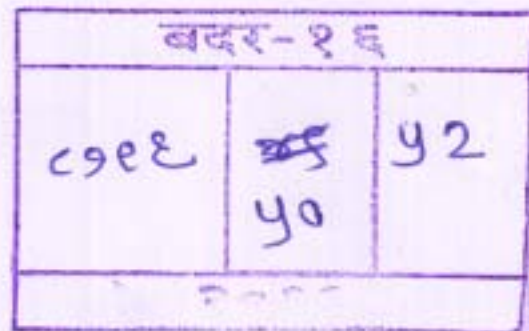 बदर-१६
८७९६ ५२
५०